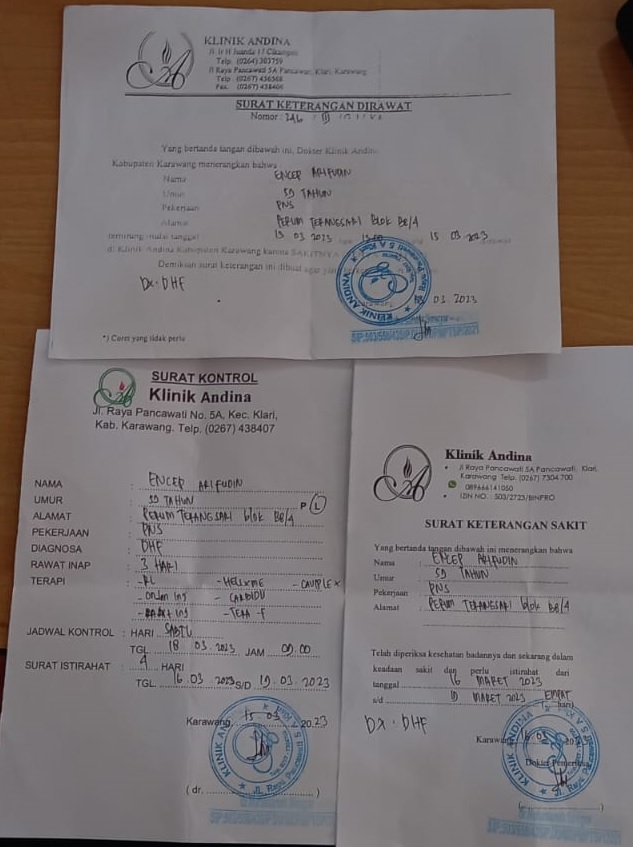 KLINIK ANDINA
Jl. Ir H Juanda 17 Cikampek
Telp. (0264) 303759
Jl Raya Pancawati 5A Pancawati, Klari, Karawang
Telp (0267) 436568
Fax. (0267) 438406
SURAT KETERANGAN DIRAWAT
Nomor : 246 / III /
Yang bertanda tangan dibawah ini, Dokter Klinik Andina
Kabupaten Karawang menerangkan bahwa
Nama ENCEP ARIFUDIN
Umur 50 TAHUN
Pekerjaan PNS
Alamat PERUM TERANGSARI blok BE/4
terhitung mulai tanggal 13 03 2023 15 03 2023
di Klinik Andina Kabupaten Karawang karena SAKITNYA
Demikian surat keterangan ini dibuat agar
Dx. DHF
03 2023
KLINIK ANDINA
*) Coret yang tidak perlu
SURAT KONTROL
Klinik Andina
Jl. Raya Pancawati No. 5A, Kec. Klari,
Kab. Karawang. Telp. (0267) 438407
NAMA : ENCEP ARIFUDIN
UMUR : 50 TAHUN P L
ALAMAT : PERUM TERANGSARI blok BE/4
PEKERJAAN : PNS
DIAGNOSA : DHF
RAWAT INAP : 3 HARI
TERAPI : - RL
JADWAL KONTROL : HARI SABTU
TGL. 18 03. 2023 JAM 09.00
SURAT ISTIRAHAT : 4 HARI
TGL. 16 03 2023 S/D 19 03 2023
Karawang, 15 03 2023
KLINIK ANDINA
Jl. Raya Pancawati 5 A
( dr. )
Klinik Andina
Jl Raya Pancawati 5A Pancawati, Klari,
Karawang Telp. (0267) 7304 700
089666141050
IZIN NO. : 503/2723/BINPRO
SURAT KETERANGAN SAKIT
Yang bertanda tangan dibawah ini menerangkan bahwa
Nama : ENCEP ARIFUDIN
Umur : 50 TAHUN
Pekerjaan : PNS
Alamat : PERUM TERANGSARI blok BE/4
Telah diperiksa kesehatan badannya dan sekarang dalam
keadaan sakit dan perlu istirahat dari
tanggal 16 MARET 2023
s/d 19 MARET 2023 EMPAT
( hari)
Dx. DHF
Karawang
Dokter Pemeriksa
KLINIK ANDINA